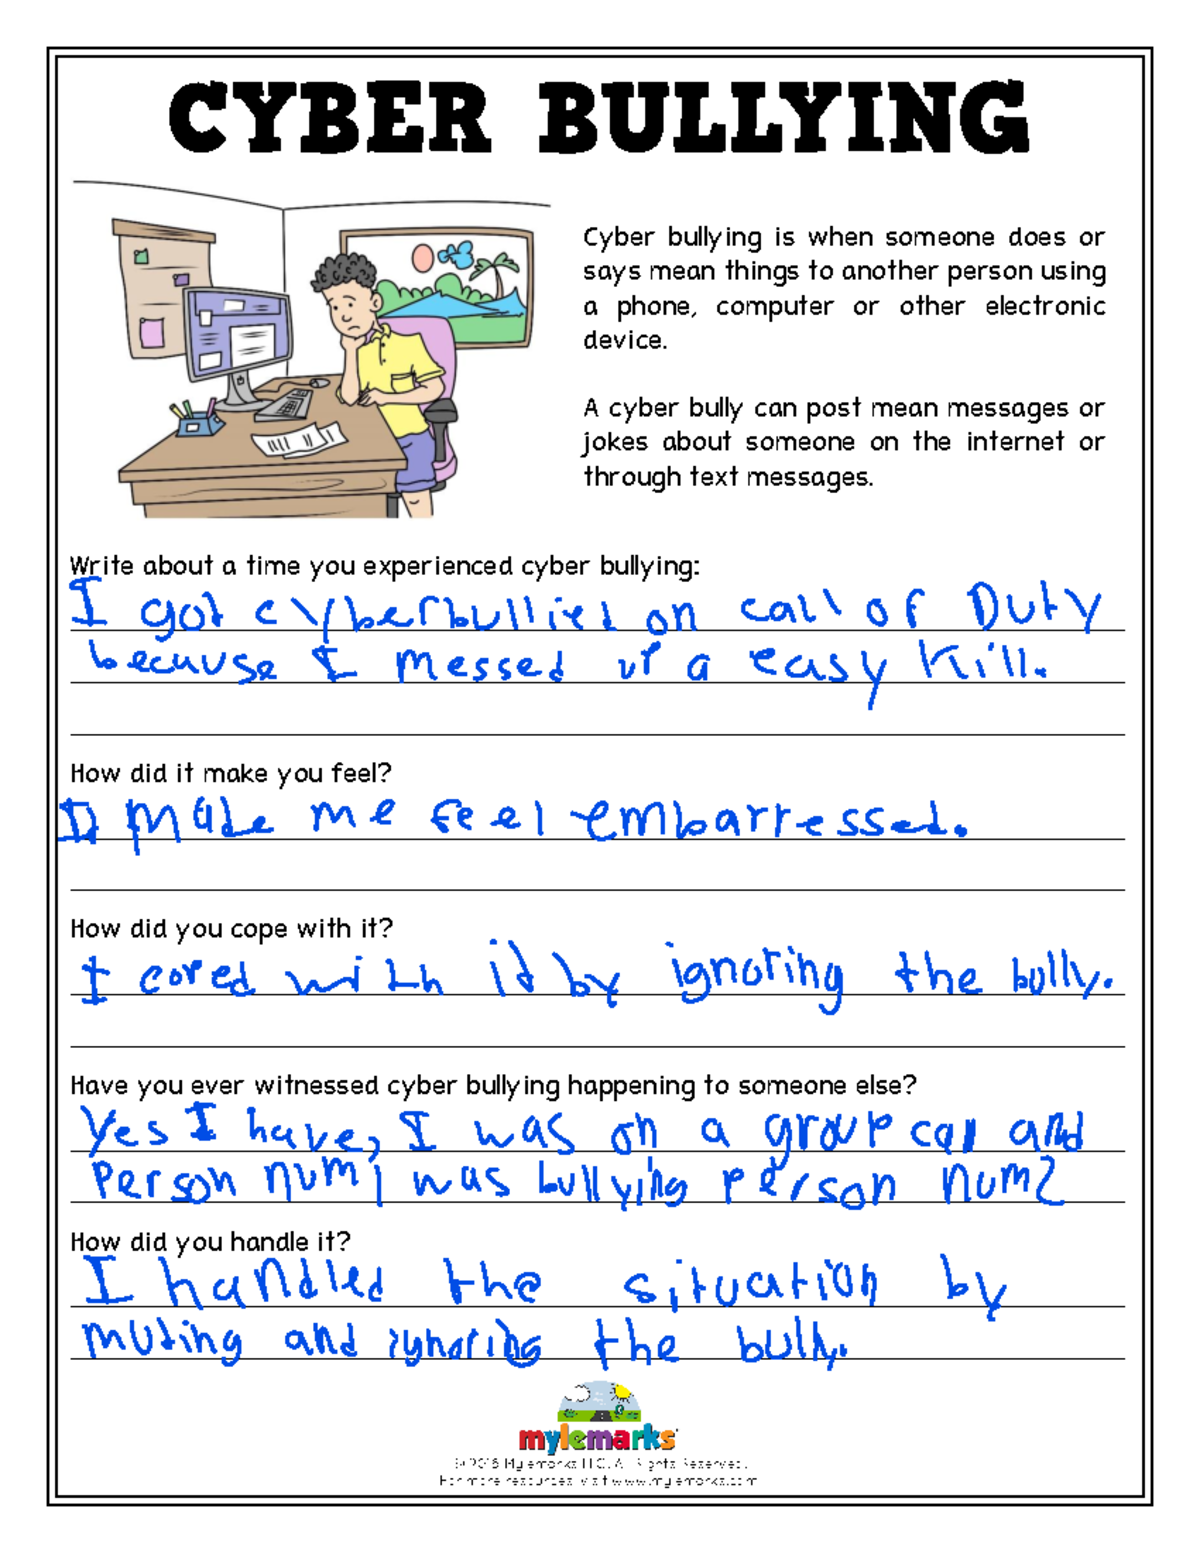 CYBER BULLYING
Cyber bullying is when someone does or
says mean things to another person using
a phone, computer or other electronic
device.
A cyber bully can post mean messages or
jokes about someone on the internet or
through text messages.
Write about a time you experienced cyber bullying:
I got cyberbullied on call of Duty
because I messed up a easy kill.
How did it make you feel?
It made me feel embarressed.
How did you cope with it?
I coped with it by ignoring the bully.
Have you ever witnessed cyber bullying happening to someone else?
Yes I have, I was on a group call and
Person num 1 was bullying person num2
How did you handle it?
I handled the situation by
muting and ignoring the bully.
mylemarks
© 2018 Mylemarks LLC. All Rights Reserved.
For more resources, visit www.mylemarks.com